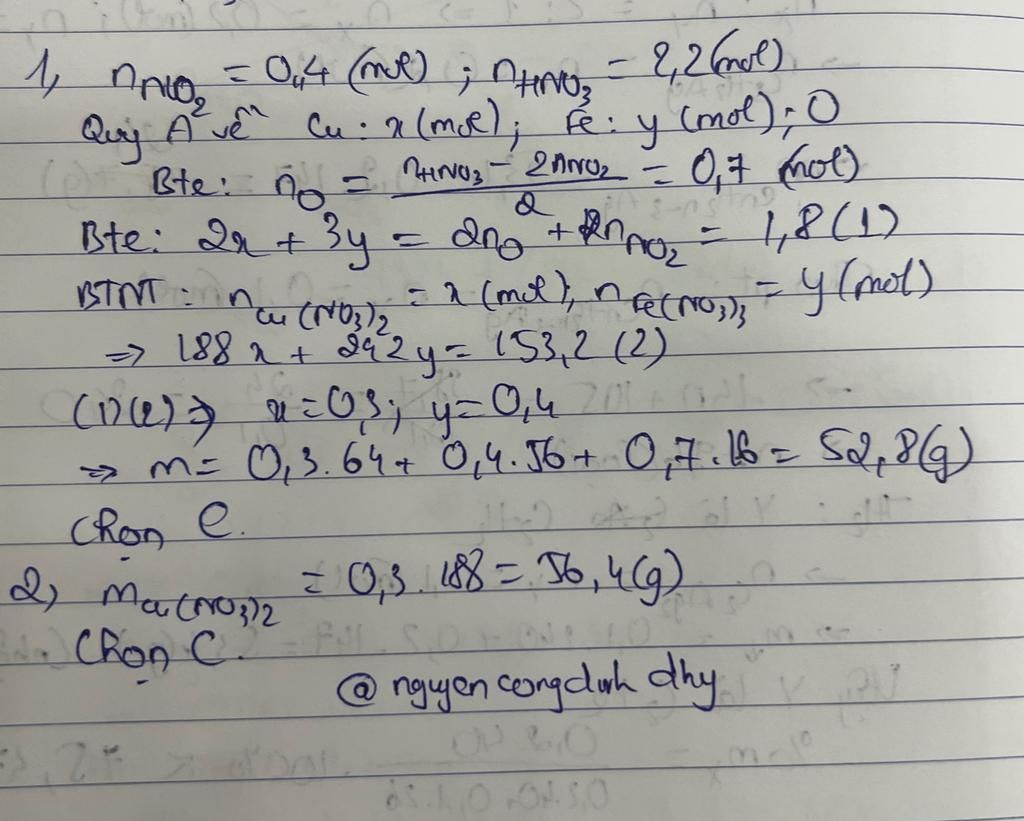 1, nNO₂ = 0,4 (mol) ; nHNO₃ = 2,2 (mol)
Quy A về Cu : x (mol) ; Fe : y (mol) ; O
Bte : nO = (nHNO₃ - 2nNO₂)/2 = 0,7 (mol)
Bte : 2x + 3y = 2nO + nNO₂ = 1,8 (1)
BTNT : nCu(NO₃)₂ = x (mol) ; nFe(NO₃)₃ = y (mol)
⇒ 188x + 242y = 153,2 (2)
(1)(2) ⇒ x = 0,3 ; y = 0,4
⇒ m = 0,3.64 + 0,4.56 + 0,7.16 = 52,8 (g)
Chọn C.
2, mCu(NO₃)₂ = 0,3.188 = 56,4 (g)
Chọn C.
@ nguyen congdinh dhy